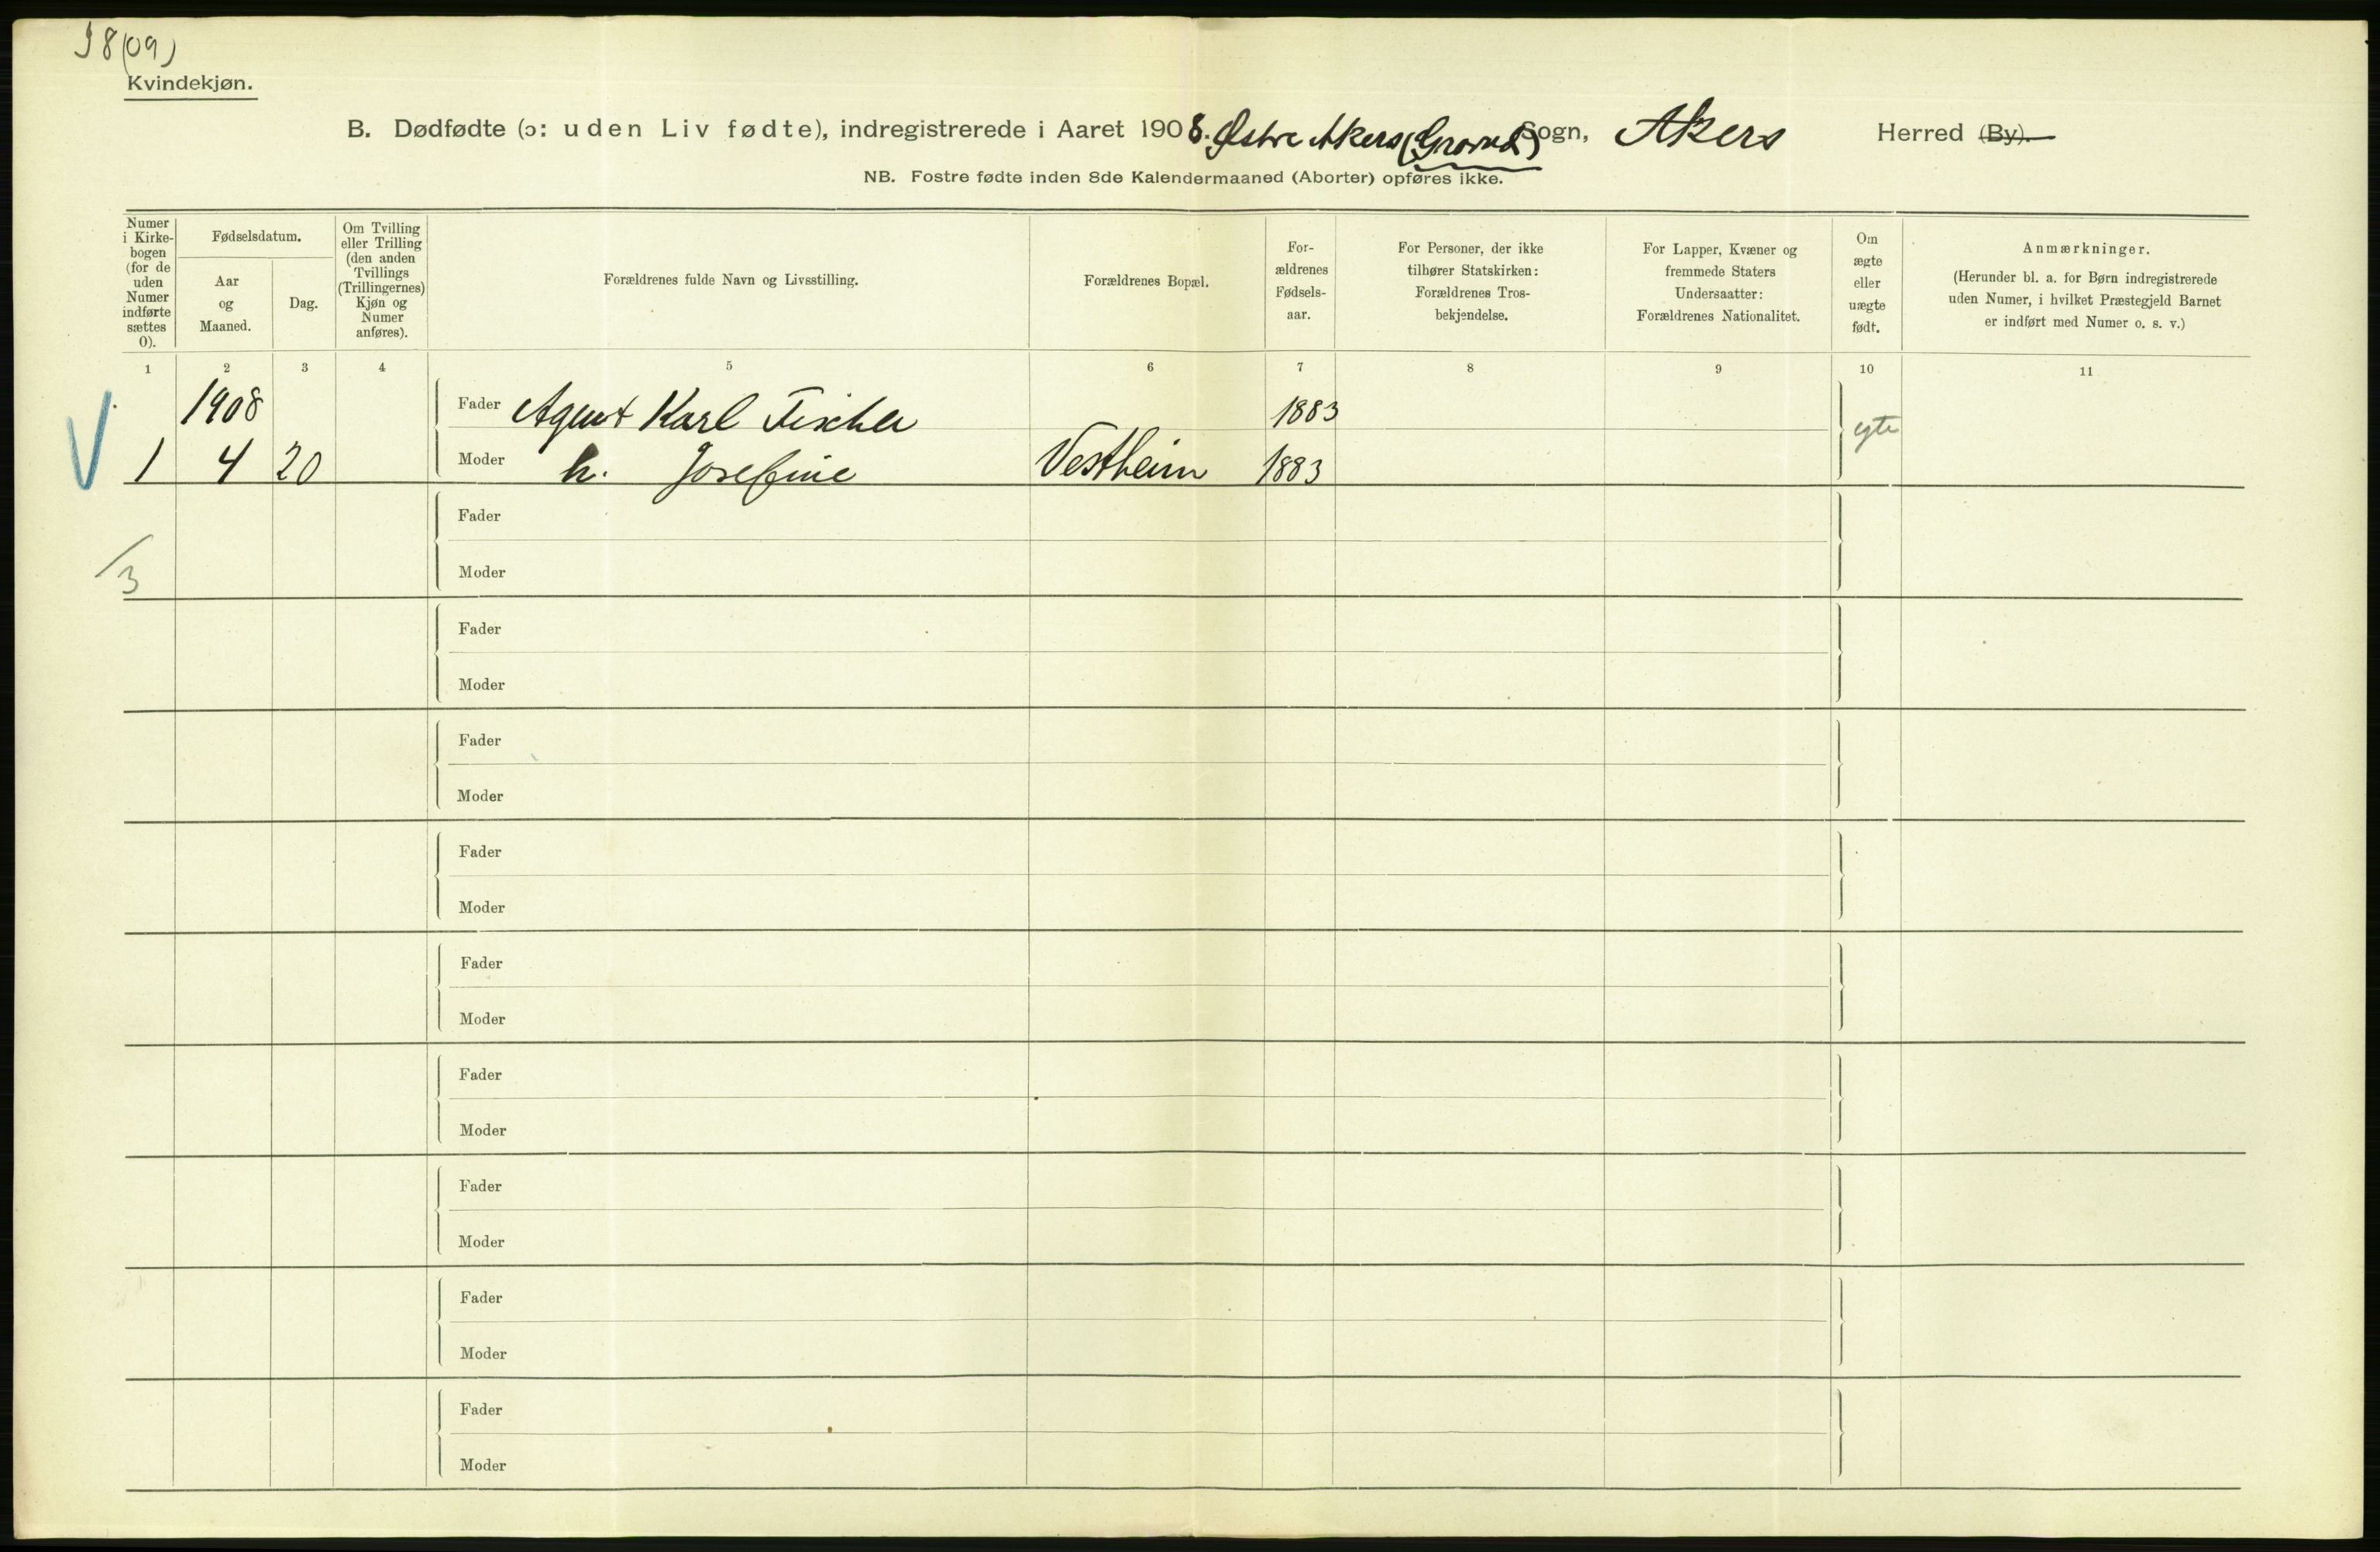 J 8(09)
Kvindekjøn.
B. Dødfødte (ɔ: uden Liv fødte), indregistrerede i Aaret 1908. Østre Akers (Grorud) Sogn, Akers Herred (By).
NB. Fostre fødte inden 8de Kalendermaaned (Aborter) opføres ikke.
Numer
i Kirke-
bogen
(for de
uden
Numer
indførte
sættes
0).
Fødselsdatum.
Aar
og
Maaned.
Dag.
Om Tvilling
eller Trilling
(den anden
Tvillings
(Trillingernes)
Kjøn og
Numer
anføres).
Forældrenes fulde Navn og Livsstilling.
Forældrenes Bopæl.
For-
ældrenes
Fødsels-
aar.
For Personer, der ikke
tilhører Statskirken:
Forældrenes Tros-
bekjendelse.
For Lapper, Kvæner og
fremmede Staters
Undersaatter:
Forældrenes Nationalitet.
Om
ægte
eller
uægte
født.
Anmærkninger.
(Herunder bl. a. for Børn indregistrerede
uden Numer, i hvilket Præstegjeld Barnet
er indført med Numer o. s. v.)
1 2 3 4 5 6 7 8 9 10 11
1908 Fader Agent Karl Fischer 1883 egte
V 1 4 20 Moder h. Josefine Vestheim 1883
Fader
/3 Moder
Fader
Moder
Fader
Moder
Fader
Moder
Fader
Moder
Fader
Moder
Fader
Moder
Fader
Moder
Fader
Moder